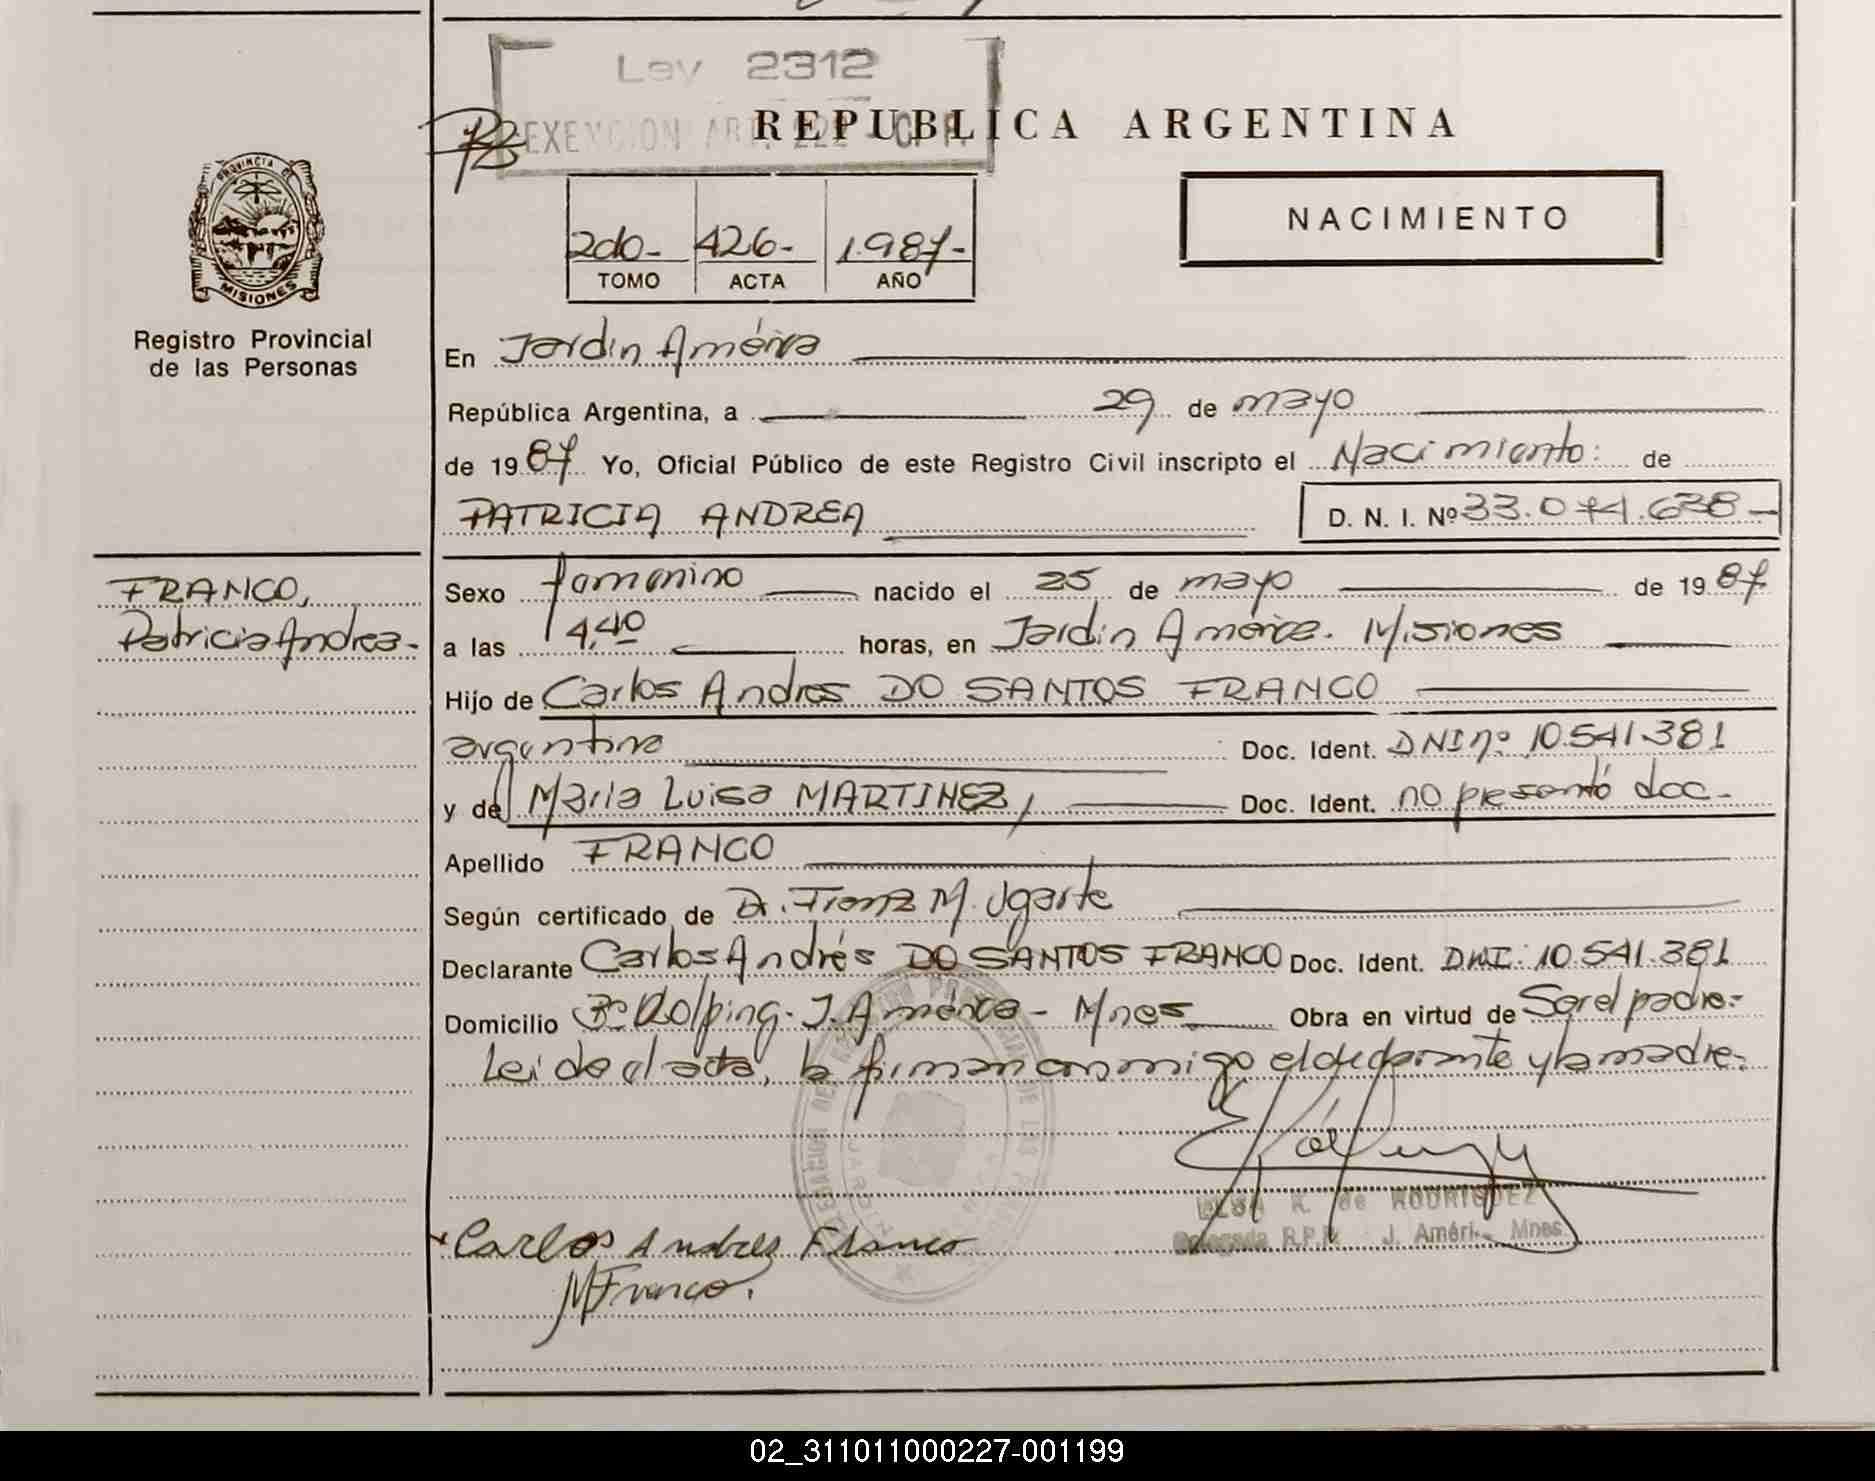 Ley 2312
EXENCION ART. 222
REPUBLICA ARGENTINA
PROVINCIA DE
MISIONES
Registro Provincial
de las Personas
2do- 426- 1.987-
TOMO ACTA AÑO
NACIMIENTO
En Jardín América
República Argentina, a 29 de mayo
de 1987 Yo, Oficial Público de este Registro Civil inscripto el Nacimiento: de
PATRICIA ANDREA D. N. I. Nº 33.074.638-
FRANCO,
Patricia Andrea-
Sexo femenino nacido el 25 de mayo de 1987
a las 4,40 horas, en Jardín América. Misiones
Hijo de Carlos Andres DO SANTOS FRANCO
argentina Doc. Ident. DNI nº 10.541.381
y de María Luisa MARTINEZ, Doc. Ident. no presentó doc.-
Apellido FRANCO
Según certificado de Dr. Franz M. Ugarte
Declarante Carlos Andrés DO SANTOS FRANCO Doc. Ident. DNI: 10.541.381
Domicilio Bº Kolping. J. América - Mnes. Obra en virtud de Ser el padre.-
Leida el acta, la firman conmigo el declarante y la madre.-
ELSA K. de RODRIGUEZ
Delegada R.P.P. J. Améri- Mnes.
Carlos Andres Franco
MFranco.
02_311011000227-001199